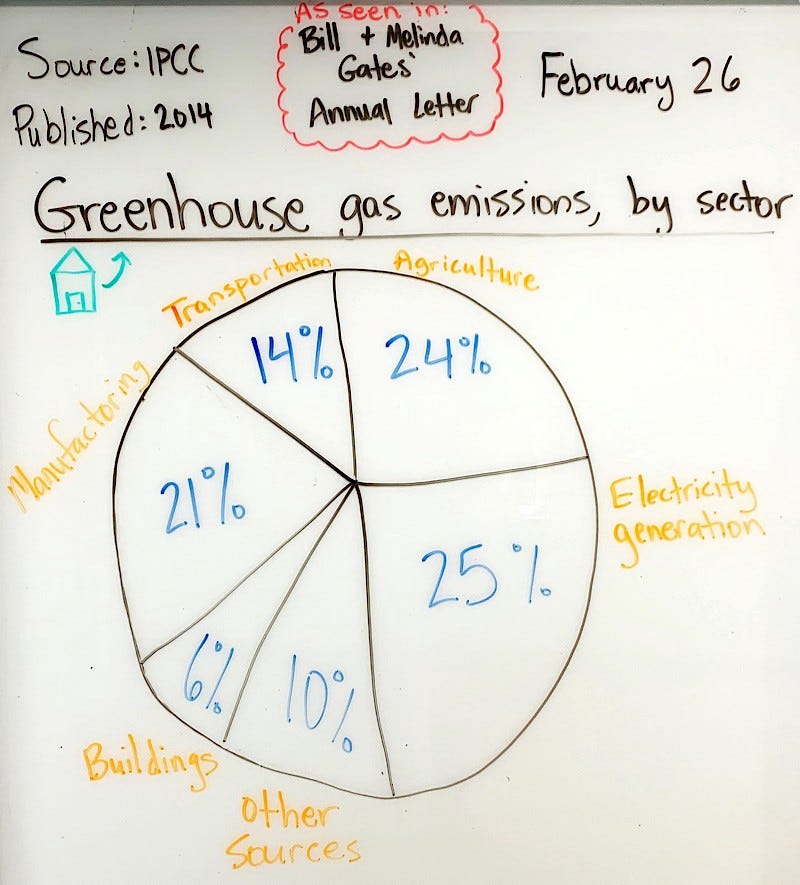 Source: IPCC
Published: 2014
As seen in:
Bill + Melinda
Gates'
Annual Letter
February 26
Greenhouse gas emissions, by sector
Transportation
14%
Agriculture
24%
Manufactoring
21%
Electricity
generation
25%
6%
Buildings
10%
Other
Sources